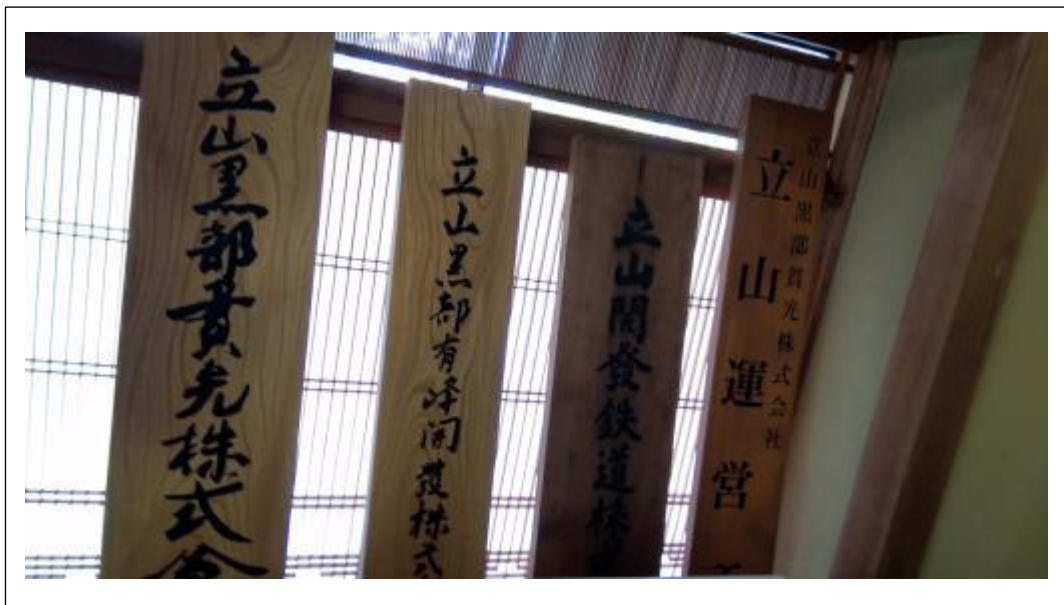 立山黒部貫光株式會
立山黒部有峰開發株式
立山開發鉄道株式
立山黒部貫光株式会社
立山運営